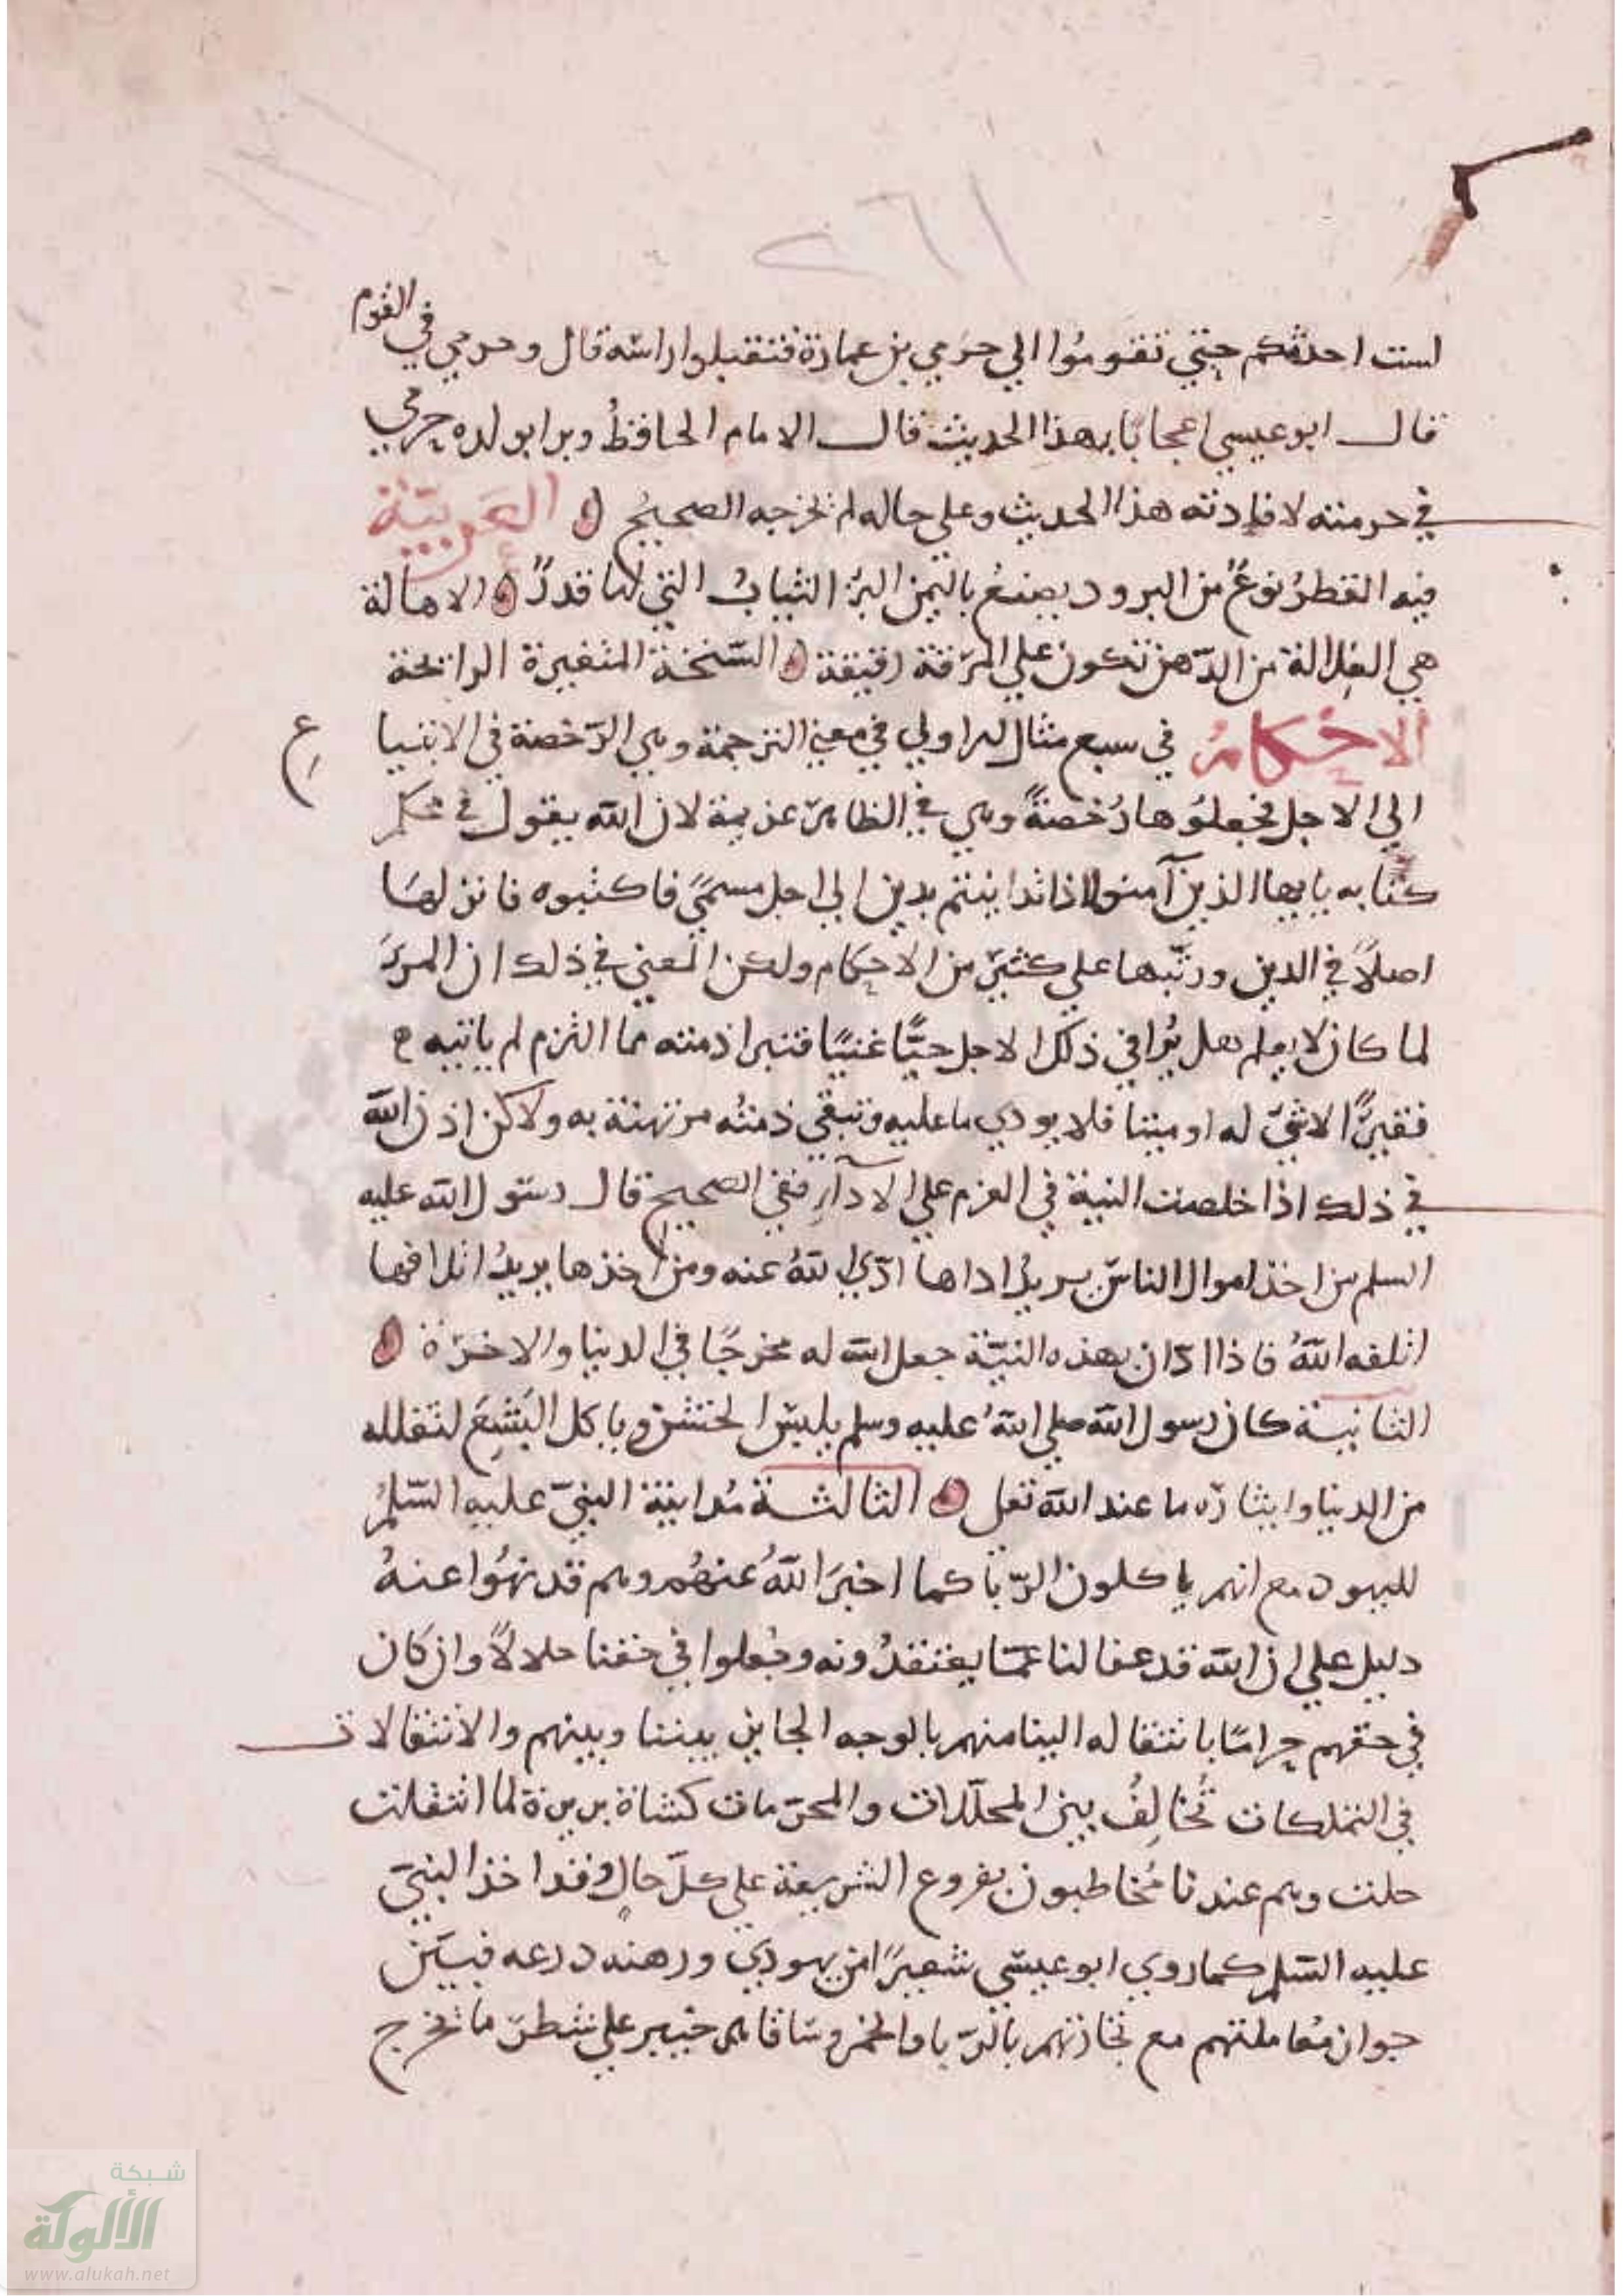 ١٦٢
لست احدثكم حتي تقوموا الي حرمي بن عمارة فتقبلوا راسه قال وحرمي في القوم
قال ابو عيسي اعجابا بهذا الحديث قال الامام الحافظ وبر ابو لده حرمي
في حرمته لافادته هذا الحديث وعلي حاله لم يخرجه الصحيح العربية
فيه القطر نوع من البرود يصنع باليمن البز الثياب التي لها قدر الاهالة
هي الغلالة من الدهن تكون علي المرقة رقيقة السنخة المتغيرة الرائحة
الاحكام في سبع مسائل الاولي في معني الترجمة وهي الرخصة في الاشيا
الي الاجل فجعلوها رخصة وهي في الظاهر عزيمة لان الله يقول في محكم
كتابه يايها الذين آمنوا اذا تداينتم بدين الي اجل مسمي فاكتبوه فانزلها
اصلا في الدين ورتبها علي كثير من الاحكام ولكن المعني في ذلك ان المرء
لما كان لا يعلم هل يوافي ذلك الاجل حيا غنيا فتبرا ذمته مما التزم لم ياتيه
فقيرا لا شي له او ميتا فلا يودي ما عليه وتبقي ذمته مرتهنة به ولاكن اذن الله
في ذلك اذا خلصت النية في العزم علي الادآء ففي الصحيح قال رسول الله عليه
السلم من اخذ اموال الناس يريد اداها ادي الله عنه ومن اخذها يريد اتلافها
اتلفه الله فاذا ادان بهذه النية جعل الله له مخرجا في الدنيا والاخرة
الثانية كان رسول الله صلي الله عليه وسلم يلبس الخشن وياكل البشع لتقلله
من الدنيا وايثاره ما عند الله تعلي الثالثة مداينة النبي عليه السلم
لليهود مع انهم ياكلون الربا كما اخبر الله عنهم وهم قد نهوا عنه
دليل علي ان الله قد عفا لنا عما يعتقدونه وجعلوا في حقنا حلالا وان كان
في حقهم حراما بانتقاله الينا منهم بالوجه الجايز بيننا وبينهم والانتقالات
في التملكات تخالف بين المحللات والمحرمات كشاة بريرة لما انتقلت
حلت وهم عندنا مخاطبون بفروع الشريعة علي كل حال وقد اخذ النبي
عليه السلم كما روي ابو عيسي شعيرا من يهودي ورهنه درعه فبين
جواز معاملتهم مع تجارتهم بالربا والخمر وساقاهل خيبر علي شطر ما تخرج
ع
شبكة
الألوكة
www.alukah.net